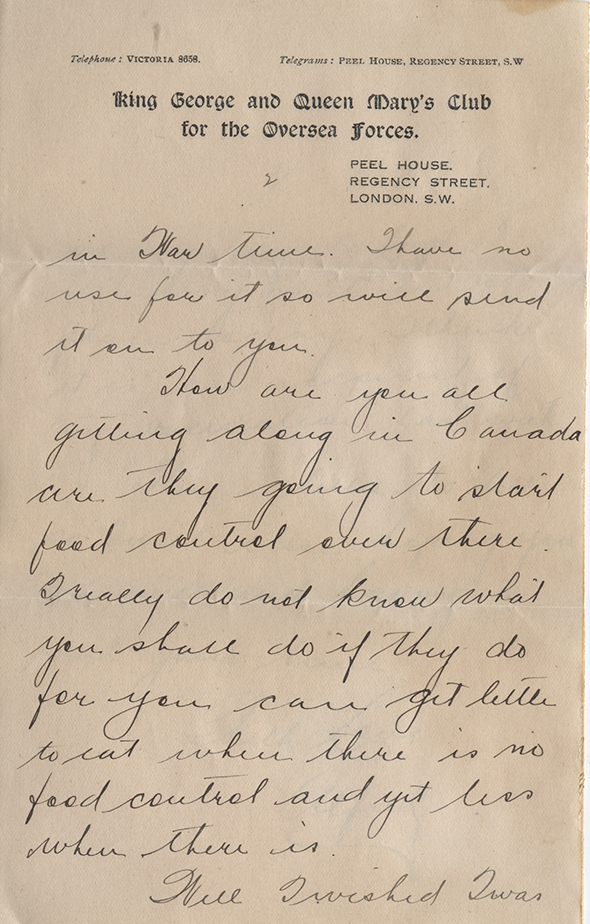 Telephone: VICTORIA 8658. Telegrams: PEEL HOUSE, REGENCY STREET, S.W
King George and Queen Mary's Club
for the Oversea Forces.
PEEL HOUSE,
2 REGENCY STREET,
LONDON, S.W.
in War time. I have no
use for it so will send
it on to you.
How are you all
getting along in Canada
are they going to start
food control over there.
I really do not know what
you shall do if they do
for you can get little
to eat when there is no
food control and yet less
when there is.
Well I wished I was